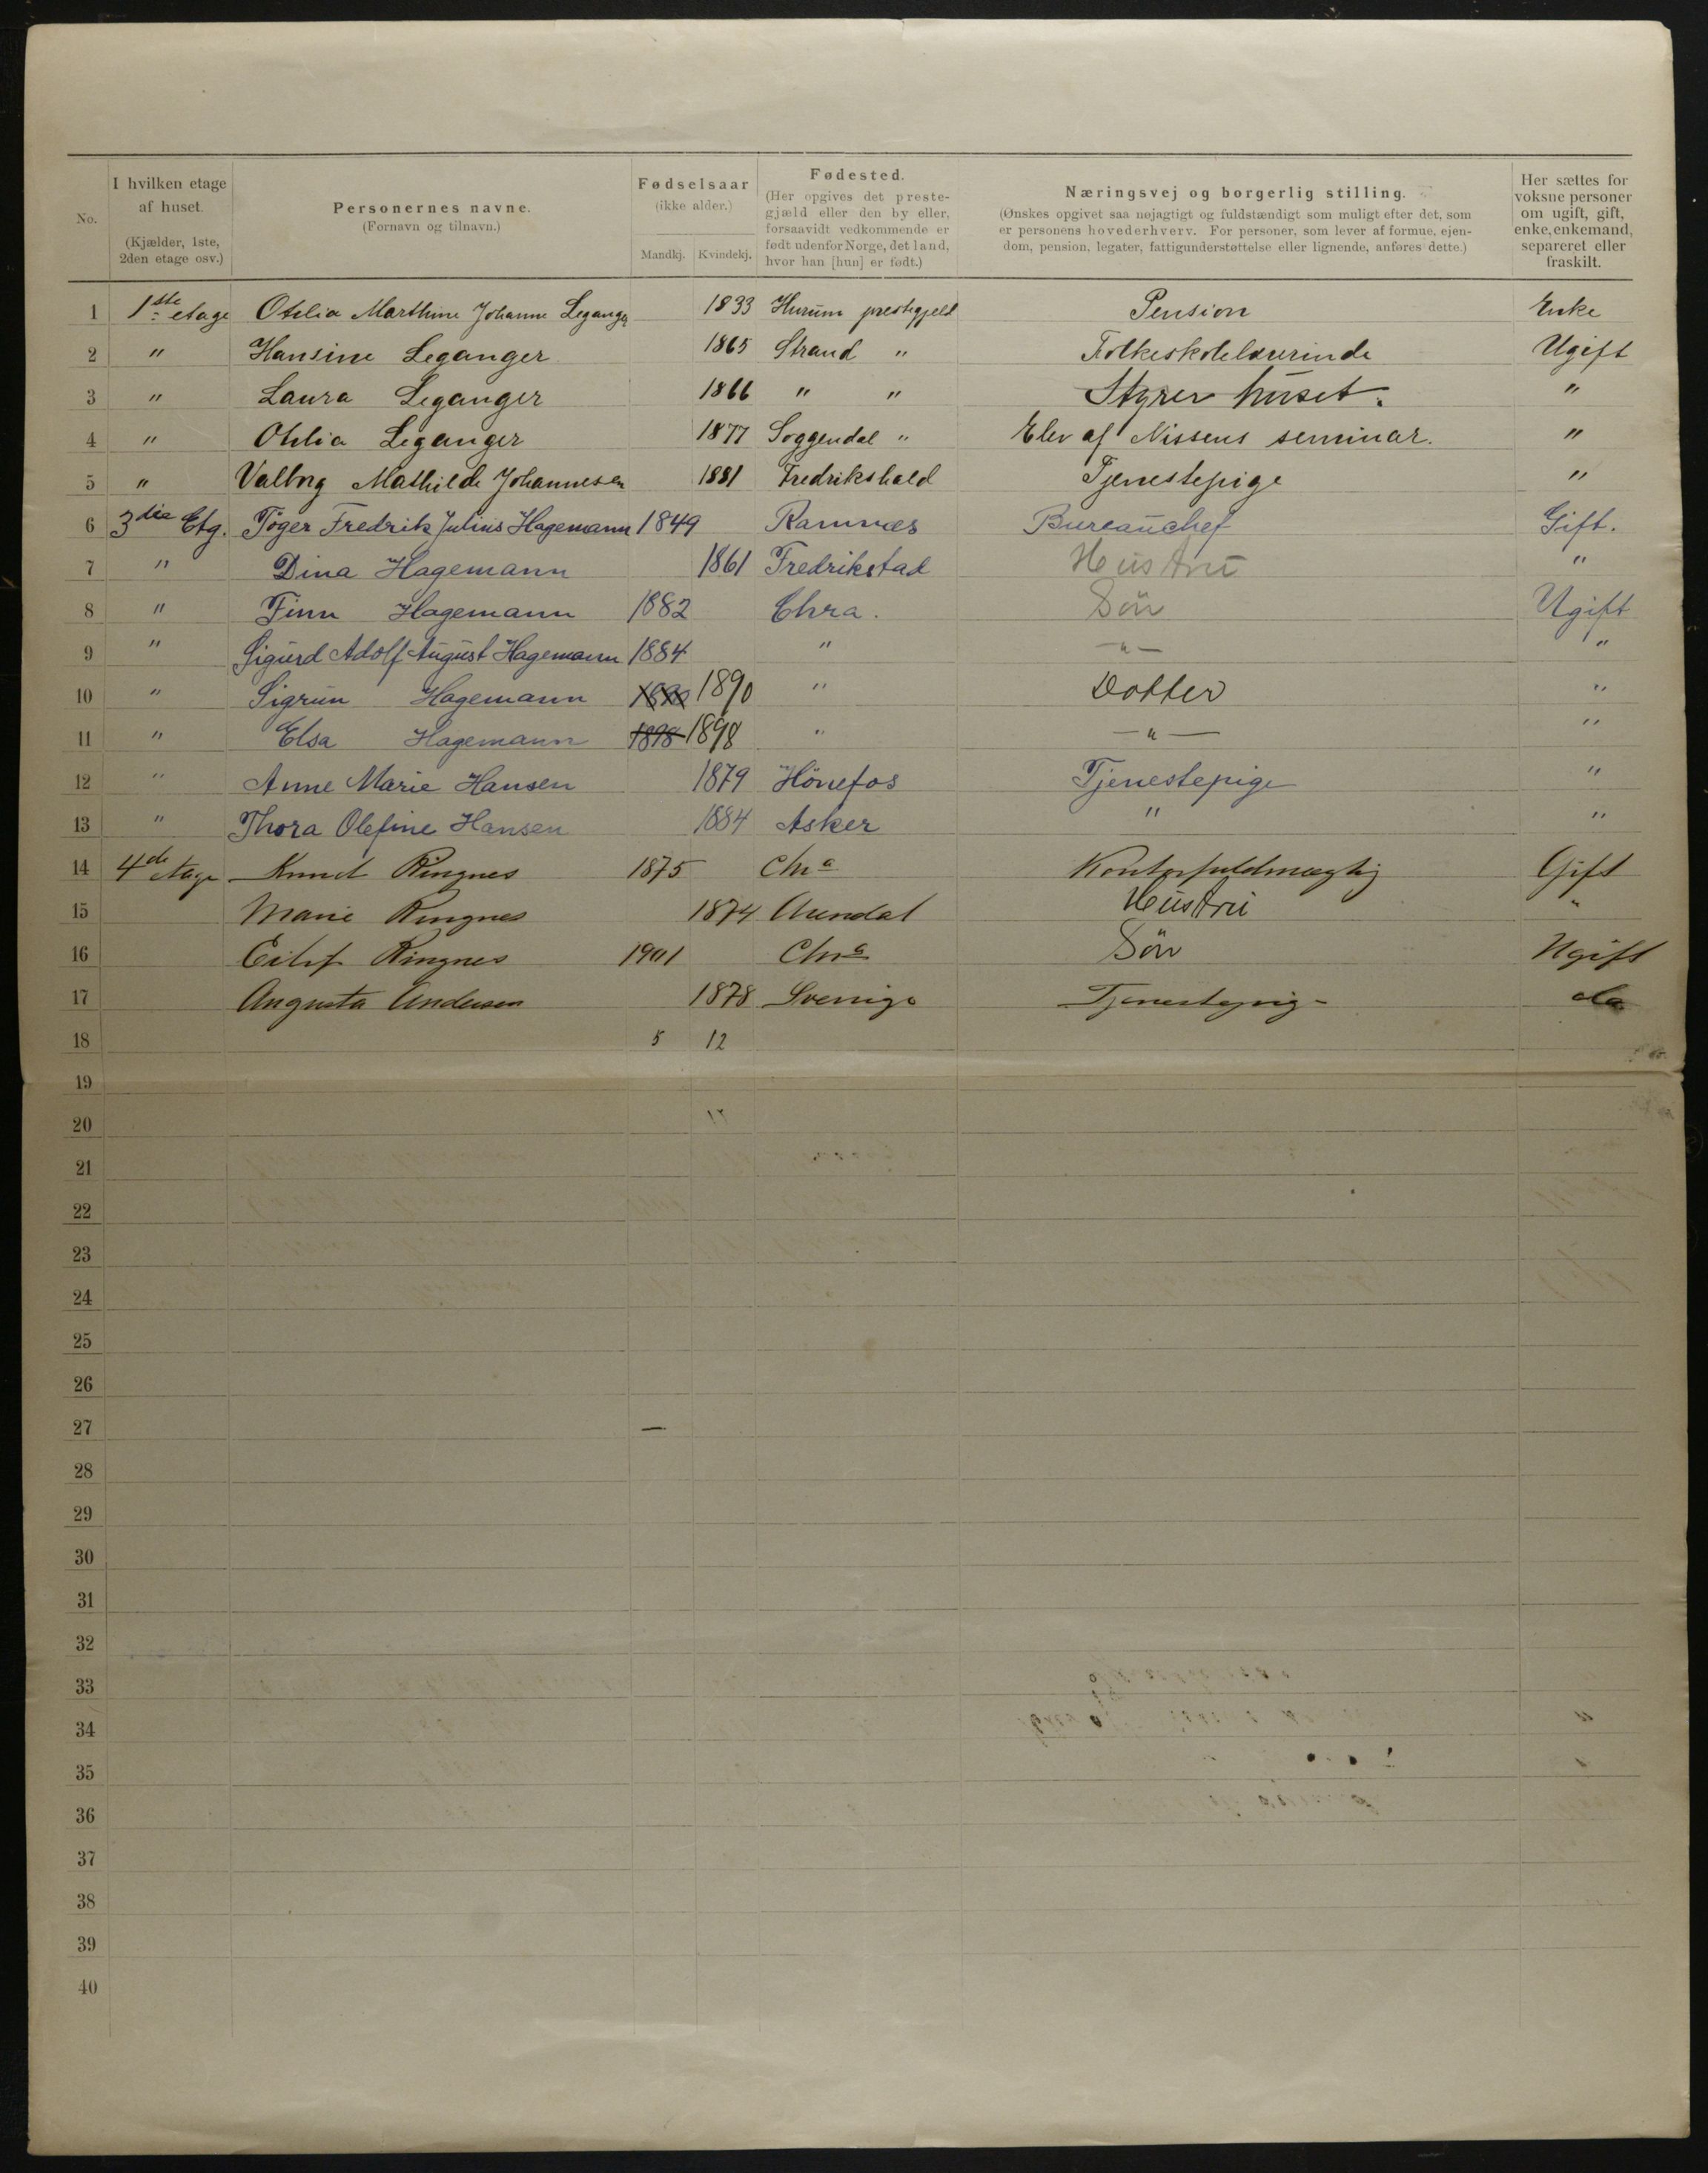 No.
I hvilken etage af huset. (Kjælder, 1ste, 2den etage osv.)
Personernes navne. (Fornavn og tilnavn.)
Fødselsaar (ikke alder.)
Mandkj. Kvindekj.
Fødested. (Her opgives det prestegjæld eller den by eller, forsaavidt vedkommende er født udenfor Norge, det land, hvor han [hun] er født.)
Næringsvej og borgerlig stilling. (Ønskes opgivet saa nøjagtigt og fuldstændigt som muligt efter det, som er personens hovederhverv. For personer, som lever af formue, ejendom, pension, legater, fattigunderstøttelse eller lignende, anføres dette.)
Her sættes for voksne personer om ugift, gift, enke, enkemand, separeret eller fraskilt.
1 1ste etage Otilia Marthine Johanne Leganger 1833 Hurum prestegjeld Pension Enke
2 " Hansine Leganger 1865 Strand " Folkeskolelærerinde Ugift
3 " Laura Leganger 1866 " " Styrer huset. "
4 " Otilia Leganger 1877 Soggendal " Elev af Nissens seminar. "
5 " Valborg Mathilde Johannesen 1881 Fredrikshald Tjenestepige "
6 3die Etg. Tøger Fredrik Julius Hagemann 1849 Ramnæs Bureauchef Gift.
7 " Dina Hagemann 1861 Fredrikstad Hustru "
8 " Finn Hagemann 1882 Chra. Sön Ugift
9 " Sigurd Adolf August Hagemann 1884 " —"— "
10 " Sigrun Hagemann 1890 1890 " Dotter "
11 " Elsa Hagemann 1898 1898 " —"— "
12 " Anne Marie Hansen 1879 Hönefos Tjenestepige "
13 " Thora Olefine Hansen 1884 Asker " "
14 4de etage Knud Ringnes 1875 Chra Kontorfuldmægtig Gift
15 Marie Ringnes 1874 Arendal Hustru "
16 Eilif Ringnes 1901 Chra Sön Ugift
17 Augusta Andersen 1878 Sverige Tjenestepige do
18 5 12
19
20
21
22
23
24
25
26
27 —
28
29
30
31
32
33
34
35
36
37
38
39
40